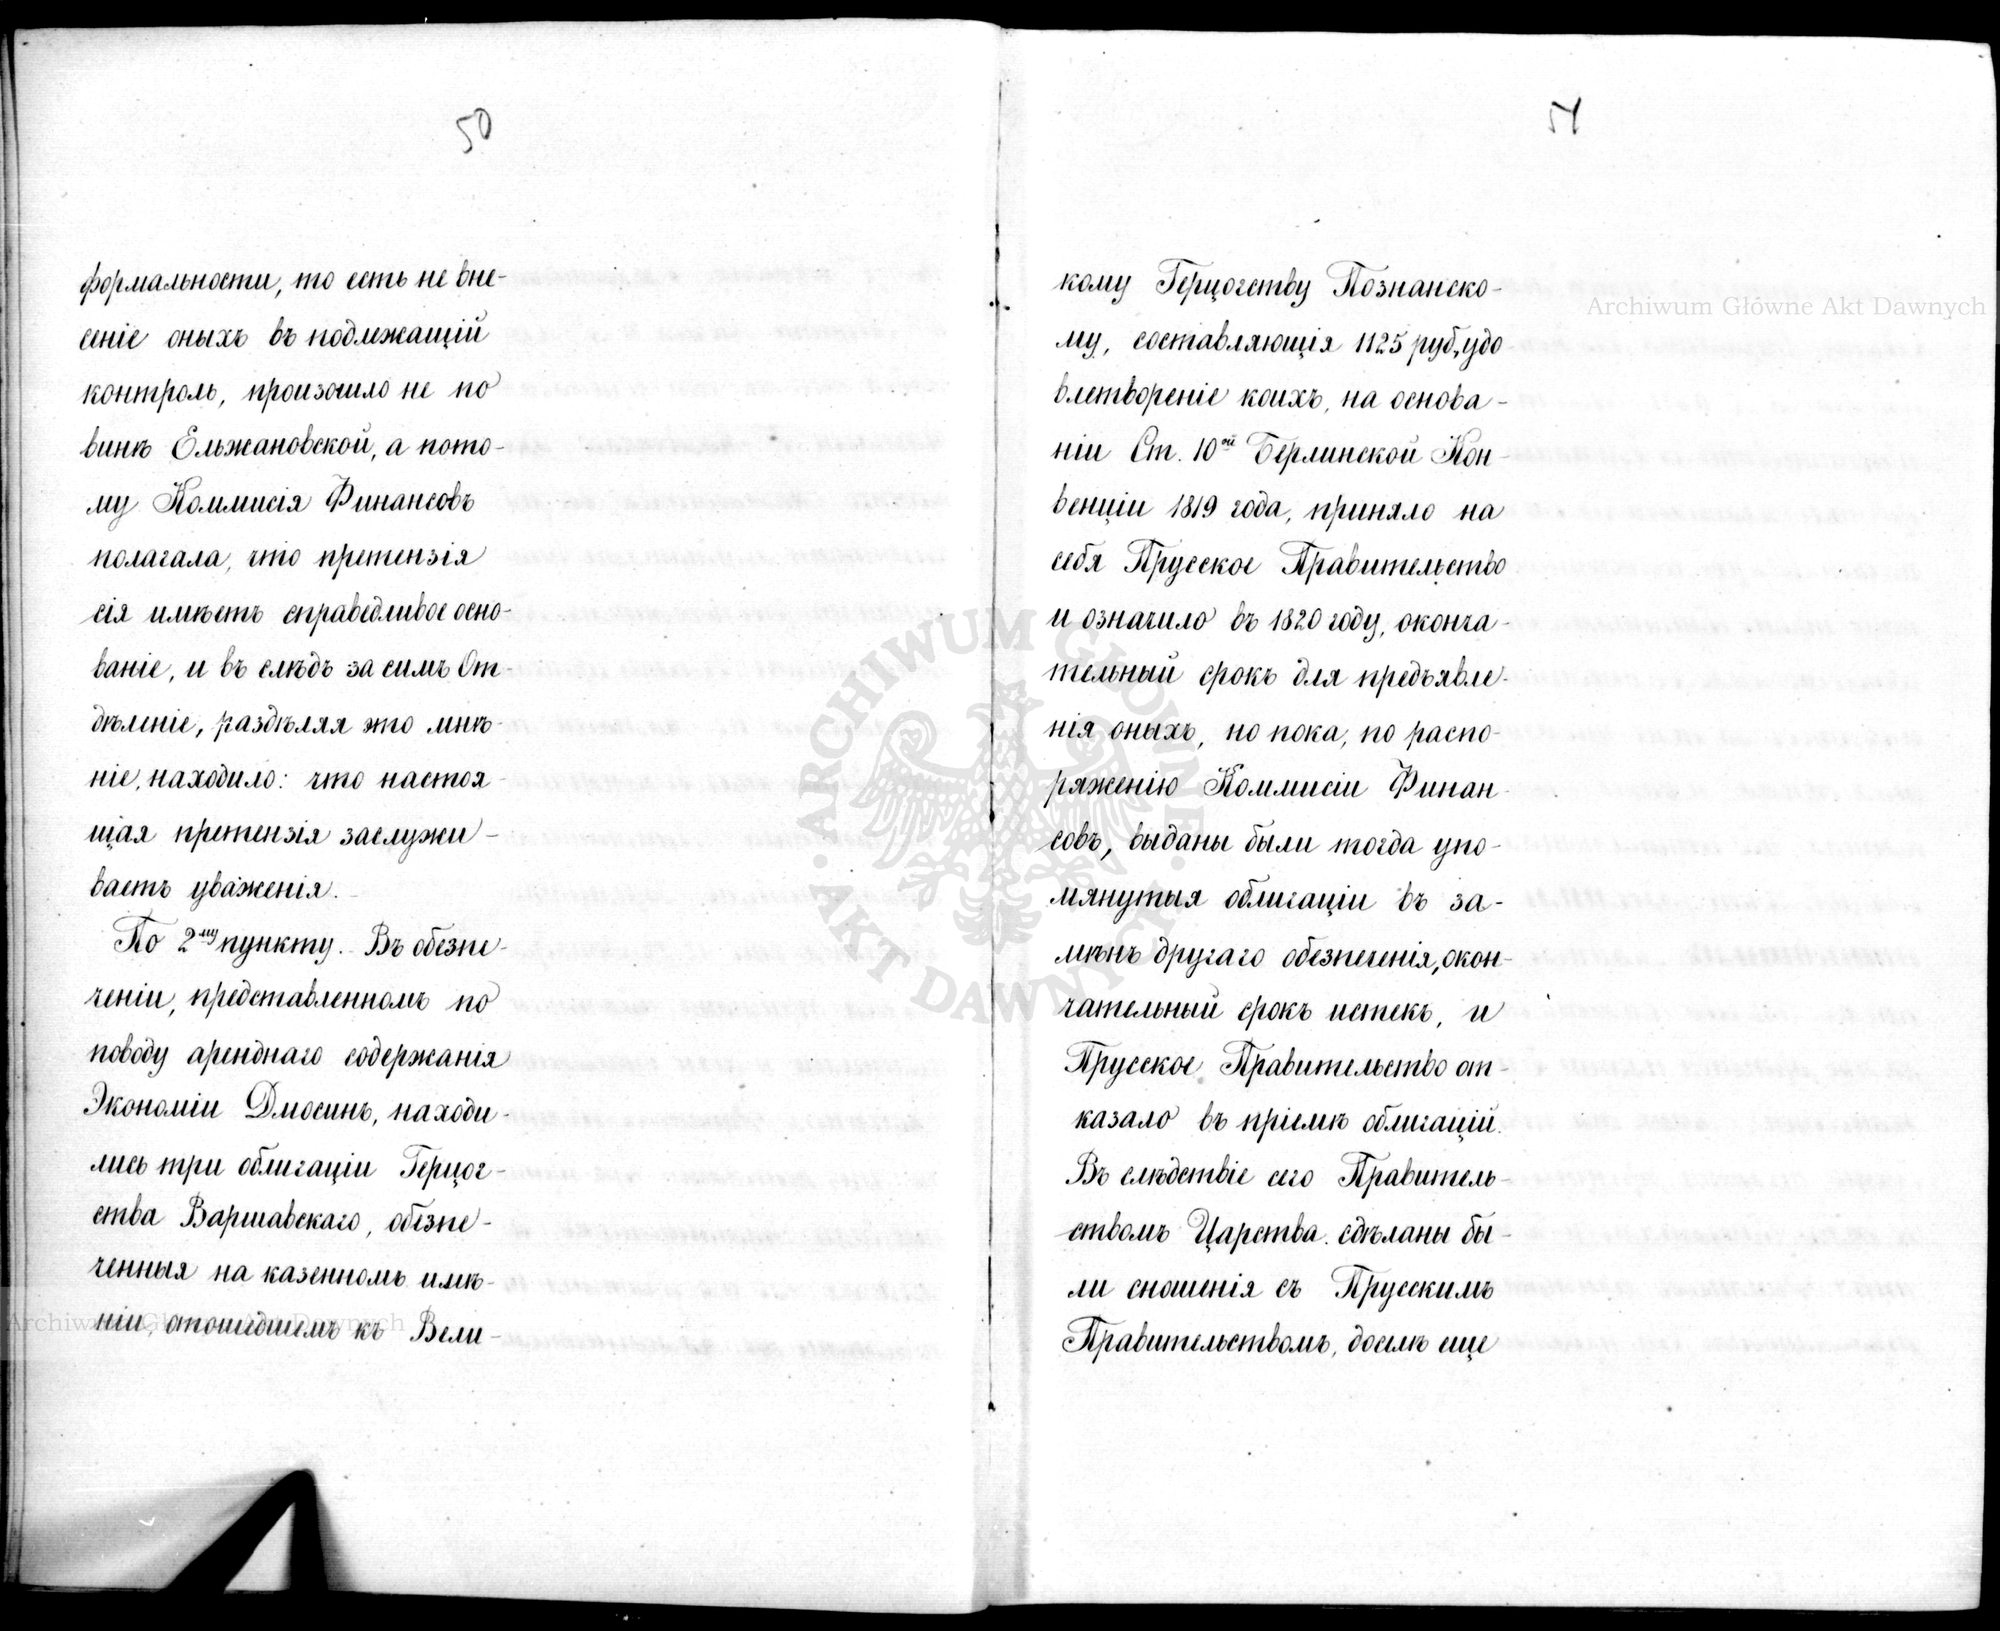 50
формальности, то есть не вне-
сеніе оныхъ въ подлежащій
контроль, произошло не по
винѣ Ельжановской, а пото-
му Коммисія Финансовъ
полагала, что претензія
сія имѣетъ справедливое осно-
ваніе, и въ слѣдъ за симъ От-
дѣленіе, раздѣляя это мнѣ-
ніе, находило: что настоя-
щая претензія заслужи-
ваетъ уваженія.
По 2му пункту. Въ обезпе-
ченіи, представленномъ по
поводу аренднаго содержанія
Экономіи Дмосинъ, находи-
лись три облигаціи Герцог-
ства Варшавскаго, обезпе-
ченныя на казенномъ имѣ-
ніи, отошедшемъ къ Вели-
51
кому Герцогству Познанско-
му, составляющія 1125 руб., удо
влетвореніе коихъ, на основа-
ніи Ст. 10ой Берлинской Кон-
венціи 1819 года, приняло на
себя Прусское Правительство
и означило въ 1820 году, оконча-
тельный срокъ для предъявле-
нія оныхъ, но пока, по распо-
ряженію Коммисіи Финан-
совъ, выданы были тогда упо-
мянутыя облигаціи въ за-
мѣнъ другаго обезпеченія, окон-
чательный срокъ истекъ, и
Прусское Правительство от-
казало въ пріемѣ облигацій.
Въ слѣдствіе сего Правитель-
ствомъ Царства сдѣланы бы-
ли сношенія съ Прусскимъ
Правительствомъ, доселѣ еще
Archiwum Główne Akt Dawnych
Archiwum Główne Akt Dawnych
ARCHIWUM GŁÓWNE AKT DAWNYCH